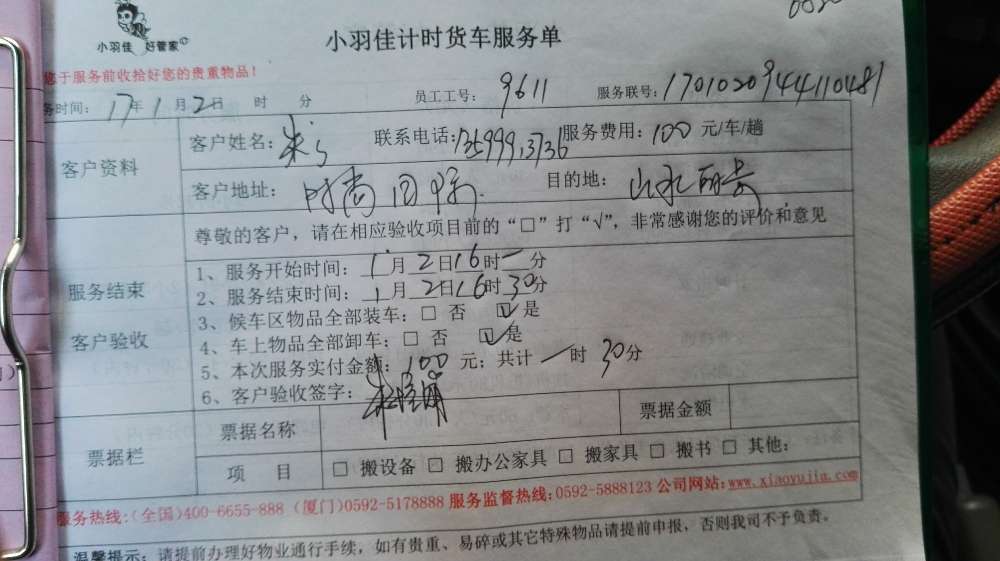 小羽佳 好管家
小羽佳计时货车服务单
您于服务前收拾好您的贵重物品！
务时间：17年1月2日 时 分 员工工号：9611 服务联号：1701020944110481
客户资料
客户姓名： 联系电话： 服务费用：100元/车/趟
客户地址：时尚国际 目的地：山水丽景
尊敬的客户，请在相应验收项目前的“□”打“√”，非常感谢您的评价和意见
服务结束
客户验收
1、服务开始时间：1月2日16时一分
2、服务结束时间：1月2日16时30分
3、候车区物品全部装车：□ 否 ☑是
4、车上物品全部卸车：□ 否 ☑是
5、本次服务实付金额：100元；共计一时30分
6、客户验收签字：
票据栏
票据名称 票据金额
项 目 □ 搬设备 □ 搬办公家具 □ 搬家具 □ 搬书 □ 其他：
服务热线：(全国)400-6655-888（厦门)0592-5178888 服务监督热线：0592-5888123 公司网站：www.xiaoyujia.com
温馨提示：请提前办理好物业通行手续，如有贵重、易碎或其它特殊物品请提前申报，否则我司不予负责。